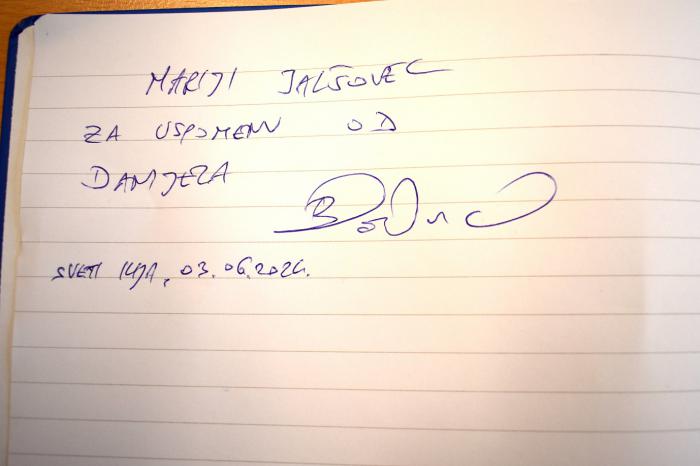 MARIJI JALŠOVEC
ZA USPOMENU OD
DANIJELA
SVETI ILIJA, 03.06.2024.